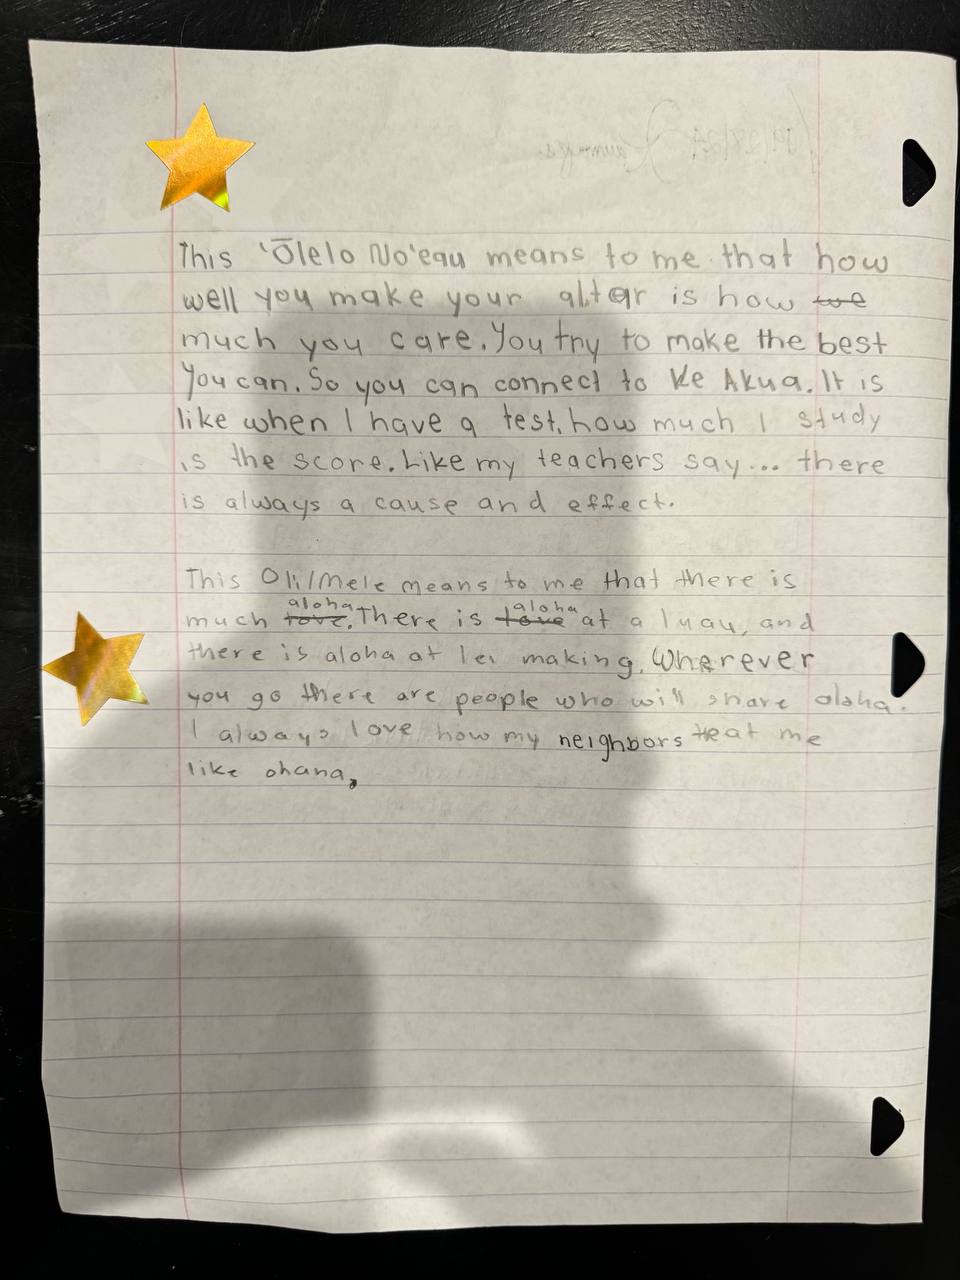 This 'Ōlelo No'eau means to me that how
well you make your altar is how we
much you care. You try to make the best
You can. So you can connect to Ke Akua. It is
like when I have a test, how much I study
is the score. Like my teachers say... there
is always a cause and effect.
This Oli/Mele means to me that there is
much love aloha. There is love aloha at a luau, and
there is aloha at lei making. Wherever
you go there are people who will share aloha.
I always love how my neighbors teat me
like ohana,